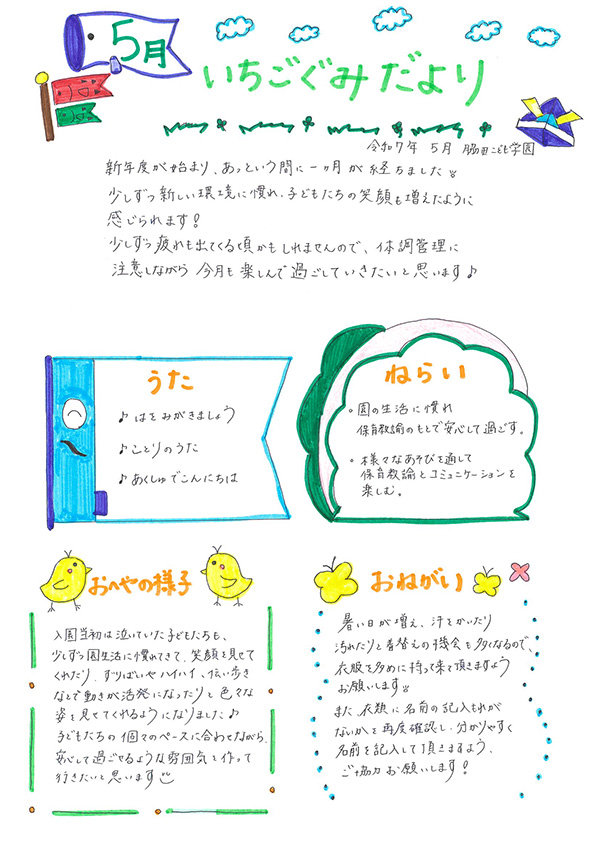 5月
いちごぐみだより
令和7年 5月 脇田こども学園
新年度が始まり、あっという間に一ヶ月が経ちました
少しずつ新しい環境に慣れ、子どもたちの笑顔も増えたように
感じられます!
少しずつ疲れも出てくる頃かもしれませんので、体調管理に
注意しながら 今月も楽しんで過ごしていきたいと思います♪
うた
♪はをみがきましょう
♪ことりのうた
♪あくしゅでこんにちは
ねらい
。園の生活に慣れ
保育教諭のもとで安心して過ごす。
。様々なあそびを通して
保育教諭とコミュニケーションを
楽しむ。
おへやの様子
入園当初は泣いていた子どもたちも、
少しずつ園生活に慣れてきて、笑顔を見せて
くれたり、ずりばいやハイハイ、伝い歩き
などで動きが活発になったりと色々な
姿を見せてくれるようになりました♪
子どもたちの個々のペースに合わせながら、
安心して過ごせるような雰囲気を作って
行きたいと思います
おねがい
暑い日が増え、汗をかいたり
汚れたりと着替えの機会も多くなるので、
衣服を多めに持って来て頂きますよう
お願いします
また、衣類に名前の記入もれが
ないかを再度確認し、分かりやすく
名前を記入して頂きますよう、
ご協力お願いします!